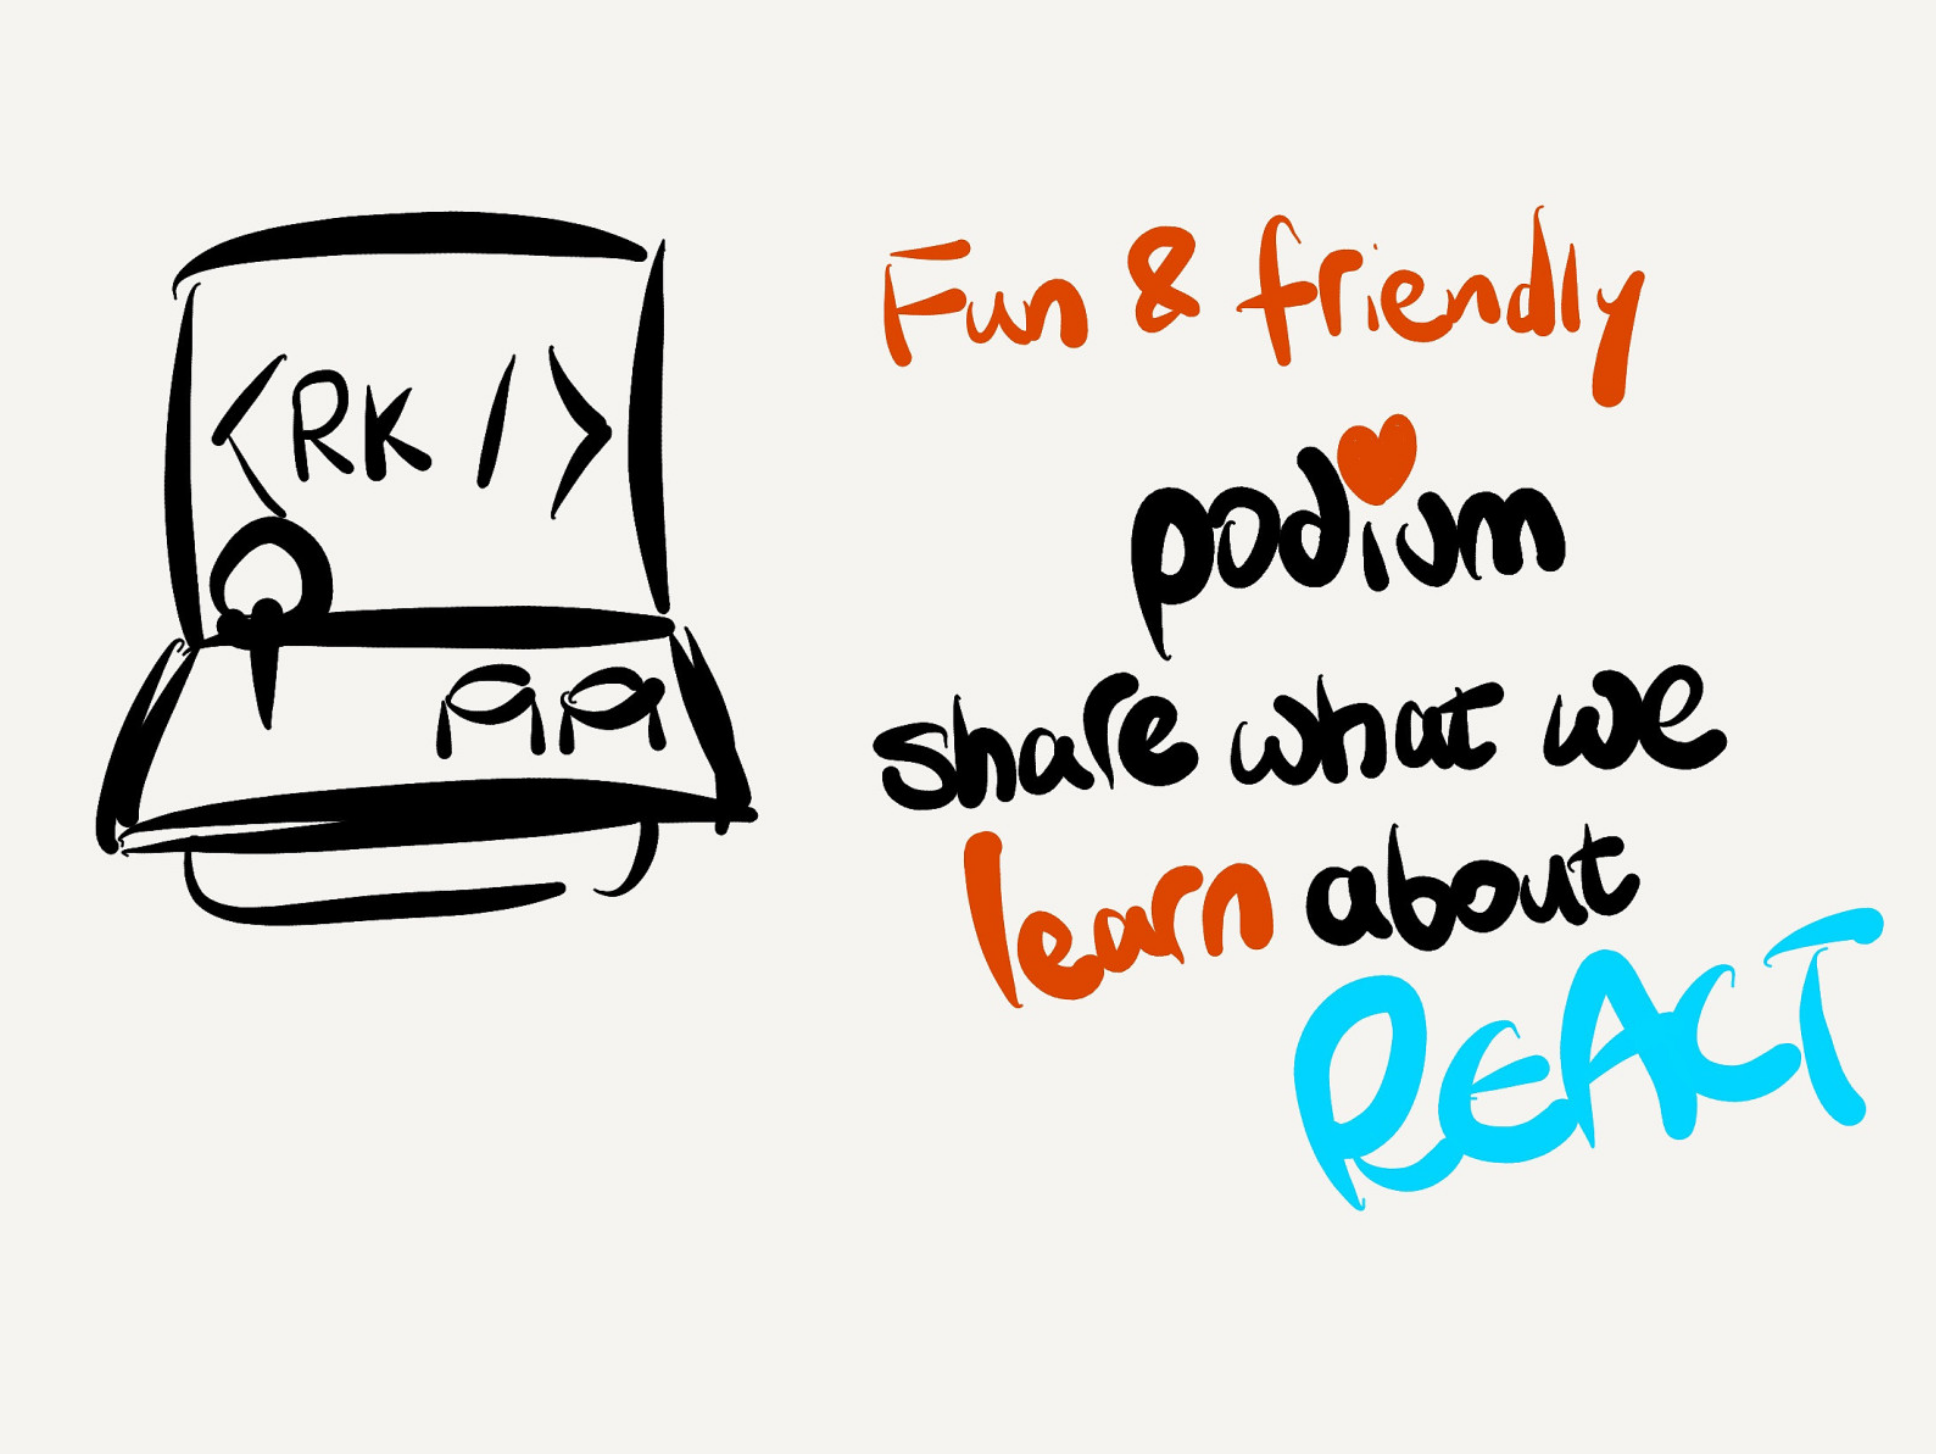 <RK />
Fun & friendly
podium
share what we
learn about
REACT